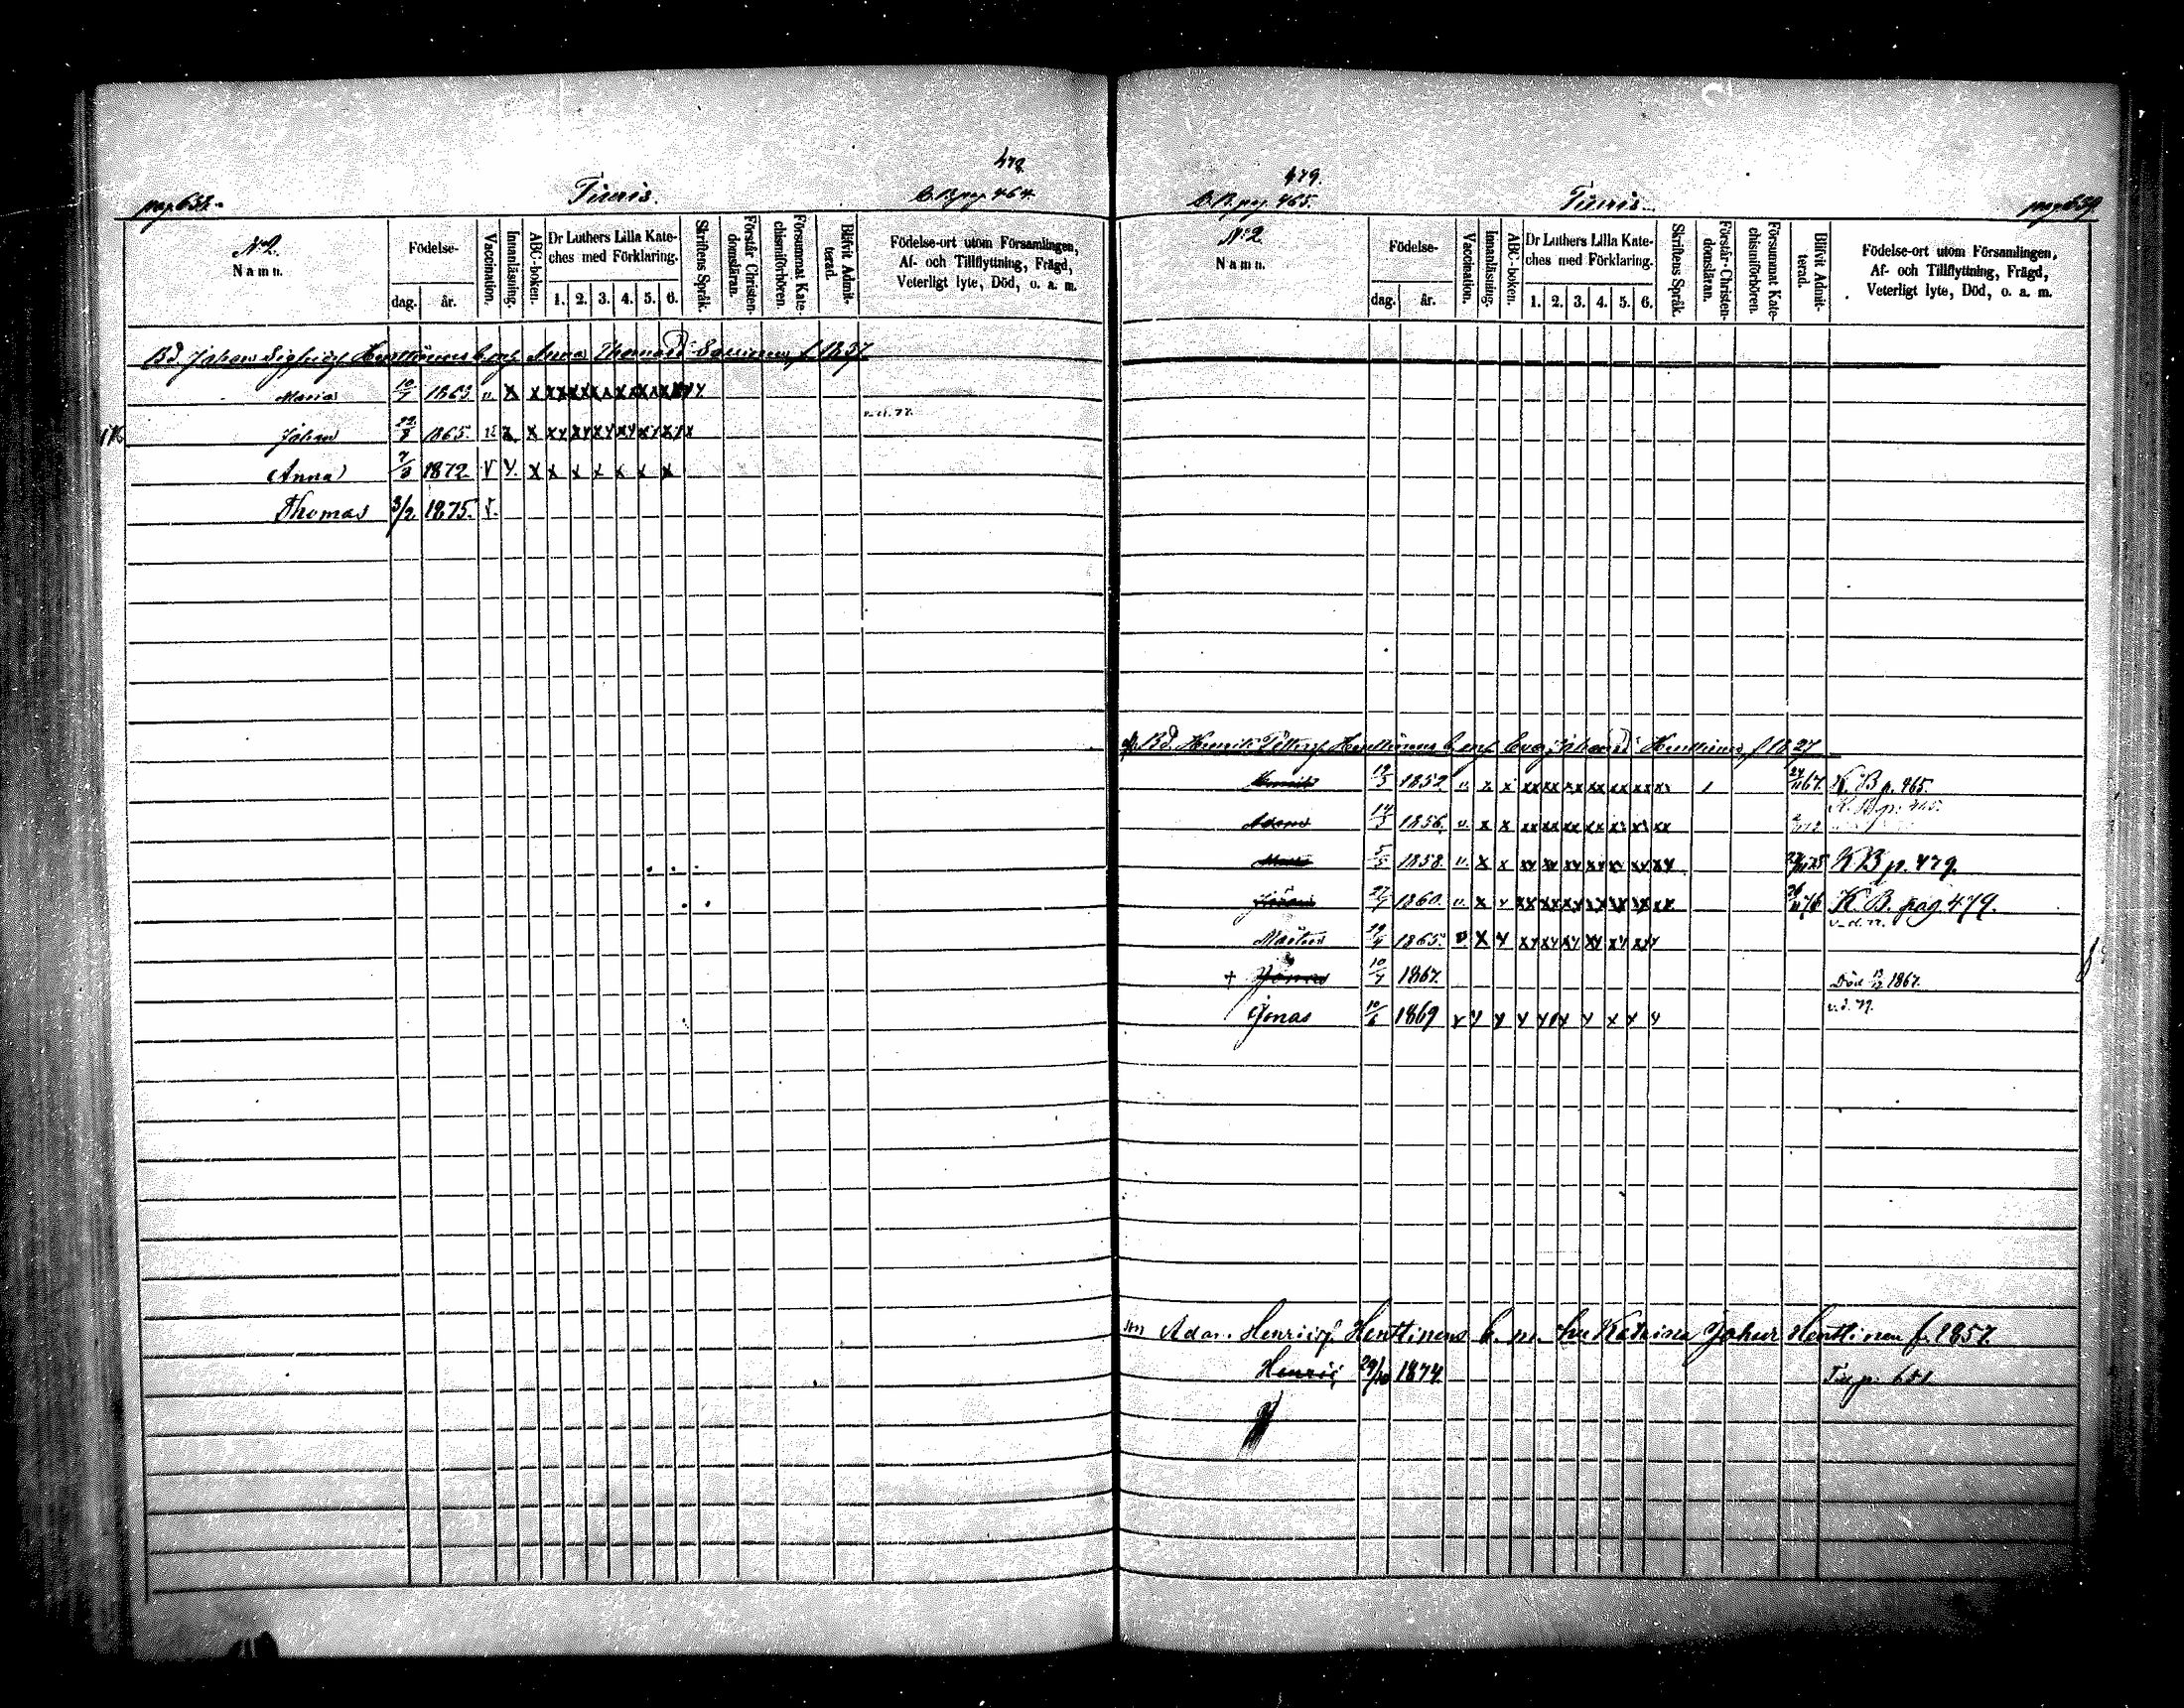 478
pag. 658. Tiuris. C.B. pag. 464.
N:2.
Namn.
Födelse-
dag. år.
Vaccination.
Innanläsning.
ABC-boken.
Dr Luthers Lilla Kate-
ches med Förklaring.
1. 2. 3. 4. 5. 6.
Skriftens Språk.
Förstår Christen-
domsläran.
Försummat Kate-
chismiförhören.
Blifvit Admit-
terad.
Födelse-ort utom Församlingen,
Af- och Tillflyttning, Frägd,
Veterligt lyte, Död, o. a. m.
Bd. Johan Sigfridsf Henttinens b. m. h. Anna Thomasd:r f. 1837
Maria 10/7 1863 v. x x xx xx xx xx xx
Johan 22/8 1865. v. x x xx xx xx xx xx xx
v. d. 77.
Anna 1872 v x x x x x x x x
Thomas 3/2 1875. v.
479.
C.B. pag. 465. Tiuris. pag. 659
N:2.
Namn.
Födelse-
dag. år.
Vaccination.
Innanläsning.
ABC-boken.
Dr Luthers Lilla Kate-
ches med Förklaring.
1. 2. 3. 4. 5. 6.
Skriftens Språk.
Förstår Christen-
domsläran.
Försummat Kate-
chismiförhören.
Blifvit Admit-
terad.
Födelse-ort utom Församlingen,
Af- och Tillflyttning, Frägd,
Veterligt lyte, Död, o. a. m.
Bd. Henrik Henttinens b. Eva Johansd:r Henttinen, f 1827
Henrik 19/3 1852 v. x x xx xx xx xx xx xx xx / 67. K. B p. 465.
Adam 14/3 1856. v. x x xx xx xx xx xx xx xx K. B. p. 465.
5/5 1858. v. x x xx xx xx xx xx xx xx 75 K B p. 479.
27/7 1860. v. x x xx xx xx xx xx xx xx 76 K. B. pag. 479.
Mårten 19/9 1865. v x x xx xx xx xx xx xx v. d. 77.
+ Jonas 10/7 1867. Död 1867.
Jonas 10/6 1869 x x x x x x x x x v. d. 77.
Adam Henriksf. Henttinens b. m. hu Katarina Johansd Henttinen f. 1857
Henrik 29/10 1874 Tiu p. 681